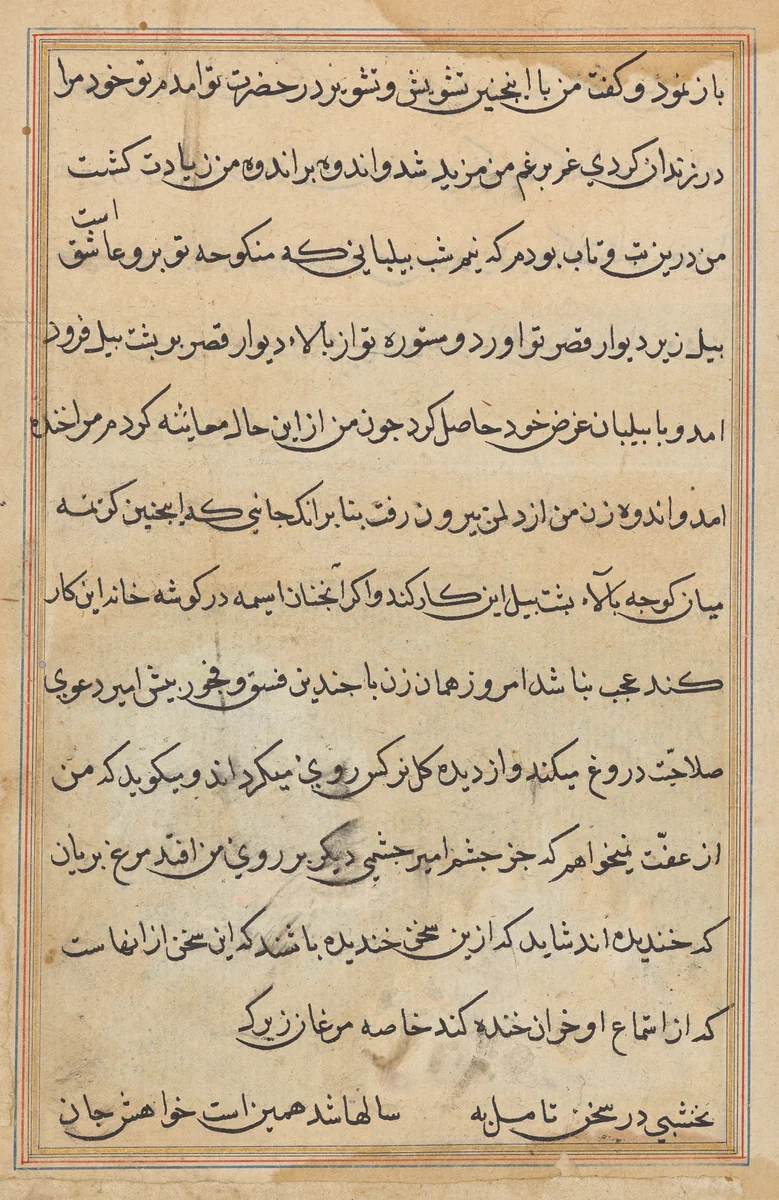 باز نمود و کفت من با اینچنین تشویش و تشویر در حضرت تو امدم تو خود مرا
در زندان کردی غم بر غم من مزید شد و اندوه بر اندوه من زیادت کشت
است
من درین تب و تاب بودم که نیم شب بیلبانی که منکوحه تو برو عاشق
بیل زیر دیوار قصر تو اورد و مستوره تو از بالاء دیوار قصر بر بشت بیل فرود
امد و با بیلبان غرض خود حاصل کرد جون من از این حال معاینه کردم مرا خنده
امد و اندوه زن من از دل من بیرون رفت بنا بر انک جائی که اینچنین
میان کوجه بالاء بشت بیل این کار کند و اکر آنچنان در کوشه خانه این کار
کند عجب نباشد امروز همان زن با جندین فسق و فجور بیش امیر دعوی
صلاحیّت دروغ میکند و از دیده کل نرکس روی میکرداند و میکوید که من
از عفّت نمیخواهم که جز جشم امیر جشمی دیکر بر روی من افتد مرغ بریان
که خندیده اند شاید که ازین سخن خندیده باشند که این سخن از انهاست
که از استماع او خران خنده کند خاصه مرغان زیرک
نخشبی در سخن تامل به سالها شد همین است خواهش جان